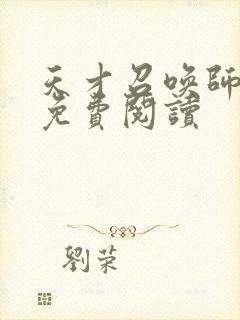 天才召喚師
免費閱讀
劉荣